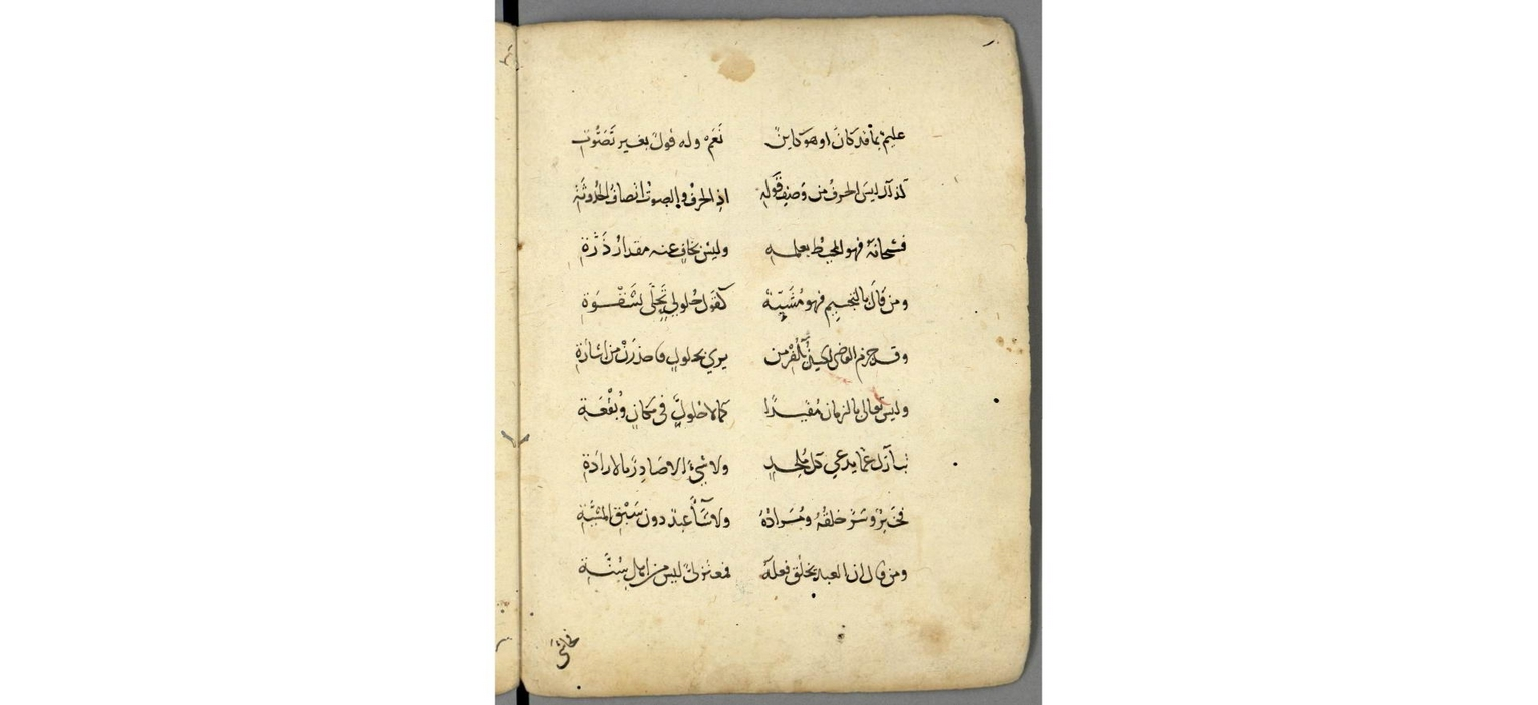 عليم بما قد كان او هو كاين نعم وله قول بغير تصوت
كذاك ليس الحرف من وصف قوله اذ الحرف والصوت اتصاف الحدوثة
فسبحانه فهو المحيط بعلمه وليس بخاف عنه مقدار ذرة
ومن قال بالتجسيم فهو مشبه كقول حلولي تجلى لشقوة
وقد جزم القاضي بكفر من يرى بحلول فاحذرن من اشارة
وليس تعالى بالزمان مقيدا كما لا حلول في مكان وبقعة
تبارك عما يدعي كل ملحد ولا شيء الا صادر بالارادة
فخير وشر خلقه ومراده ولا شاء عبد دون سبق المشية
ومن قال ان العبد يخلق فعله فمعتزلي ليس من اهل سنة